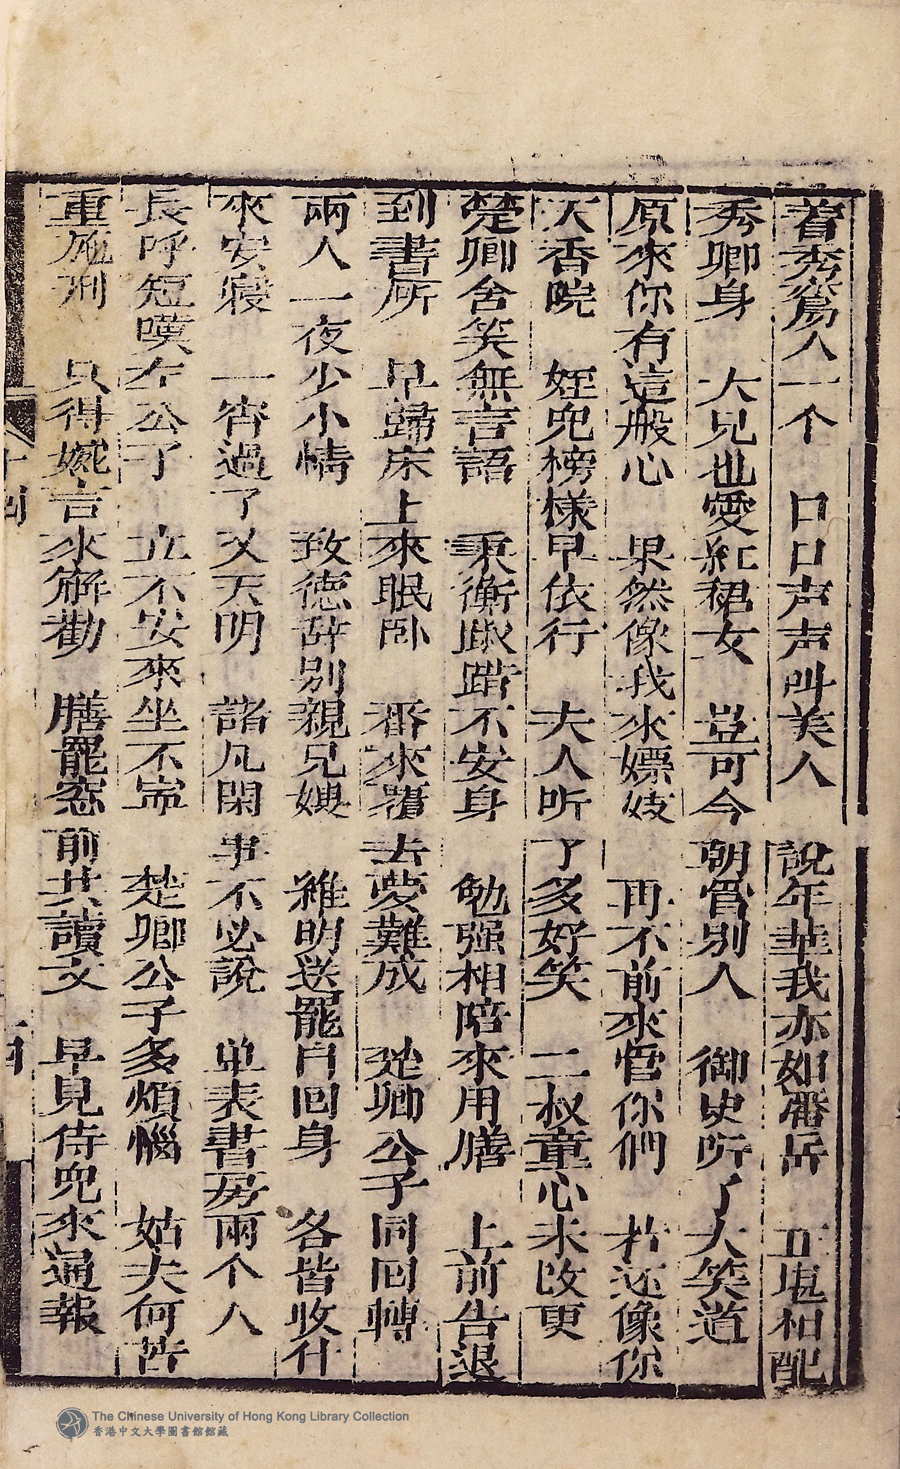 着秀鸞人一个　口口声声叫美人　說年華我亦如潘岳　正堪相配
秀卿身　大兄也愛紅裙女　豈可今朝管別人　御史听了大笑道
原來你有這般心　果然像我來嫖妓　再不前來管你們　若还像你
天香院　姪兒榜様早依行　夫人听了多好笑　二叔童心未改更
楚卿含笑無言語　秉衡踧踖不安身　勉强相陪來用膳　上前告退
到書所　早歸床上來眠卧　番來覆去夢難成　楚卿公子同回轉
兩人一夜少小情　致德辞別親兄嫂　維明送罷自回身　各皆收什
來安寝　一宵過了又天明　諸凡閑事不必說　单表書房兩个人
長呼短嘆左公子　立不安來坐不寧　楚卿公子多煩惱　姑夫何苦
重施刑　只得婉言來解勸　膳罷窓前共讀文　早見侍兒來通報
十四
The Chinese University of Hong Kong Library Collection
香港中文大學圖書館館藏